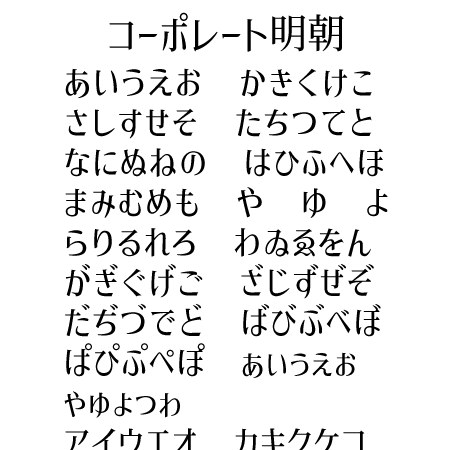 コーポレート明朝
あいうえお かきくけこ
さしすせそ たちつてと
なにぬねの はひふへほ
まみむめも や ゆ よ
らりるれろ わゐゑをん
がぎぐげご ざじずぜぞ
だぢづでど ばびぶべぼ
ぱぴぷぺぽ ぁぃぅぇぉ
ゃゅょっゎ
アイウエオ カキクケコ